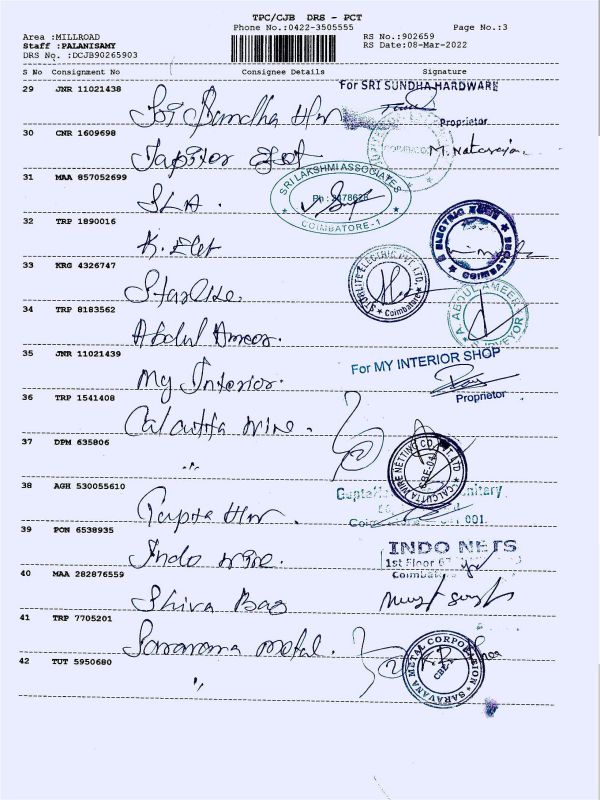 TPC/CJB DRS - PCT
Phone No.:0422-3505555
Page No.:3
Area :MILLROAD
RS No.:902659
Staff :PALANISAMY
RS Date:08-Mar-2022
DRS No. :DCJB90265903
S No Consignment No Consignee Details Signature
29 JNR 11021438
For SRI SUNDHA HARDWARE
Sri Sundha Hw
Proprietor
30 CNR 1609698
COIMBATORE
M. Natarajan
31 MAA 857052699
SRI LAKSHMI ASSOCIATES
COIMBATORE-1
SLA.
32 TRP 1890016
ELECTRIC
COIMBATORE
K. Elet
33 KRG 4326747
STARLITE ELECTRIC PVT. LTD.
Coimbatore
Starlite.
34 TRP 8183562
A. ABDUL AMEER
SURVEYOR
Abdul Ameer.
35 JNR 11021439
For MY INTERIOR SHOP
My Interior.
Proprietor
36 TRP 1541408
Calcutta wire.
37 DPM 635806
CALCUTTA WIRE NETTING CO. PVT LTD
CBE-04
38 AGH 530055610
Gupta
Gupta Hw.
001.
39 PON 6538935
INDO NETS
1st Floor
Indo wire.
Coimbatore
40 MAA 282876559
Shiva Bag
41 TRP 7705201
SARAVANA METAL CORPORATION
CBE
Saravana metal.
42 TUT 5950680